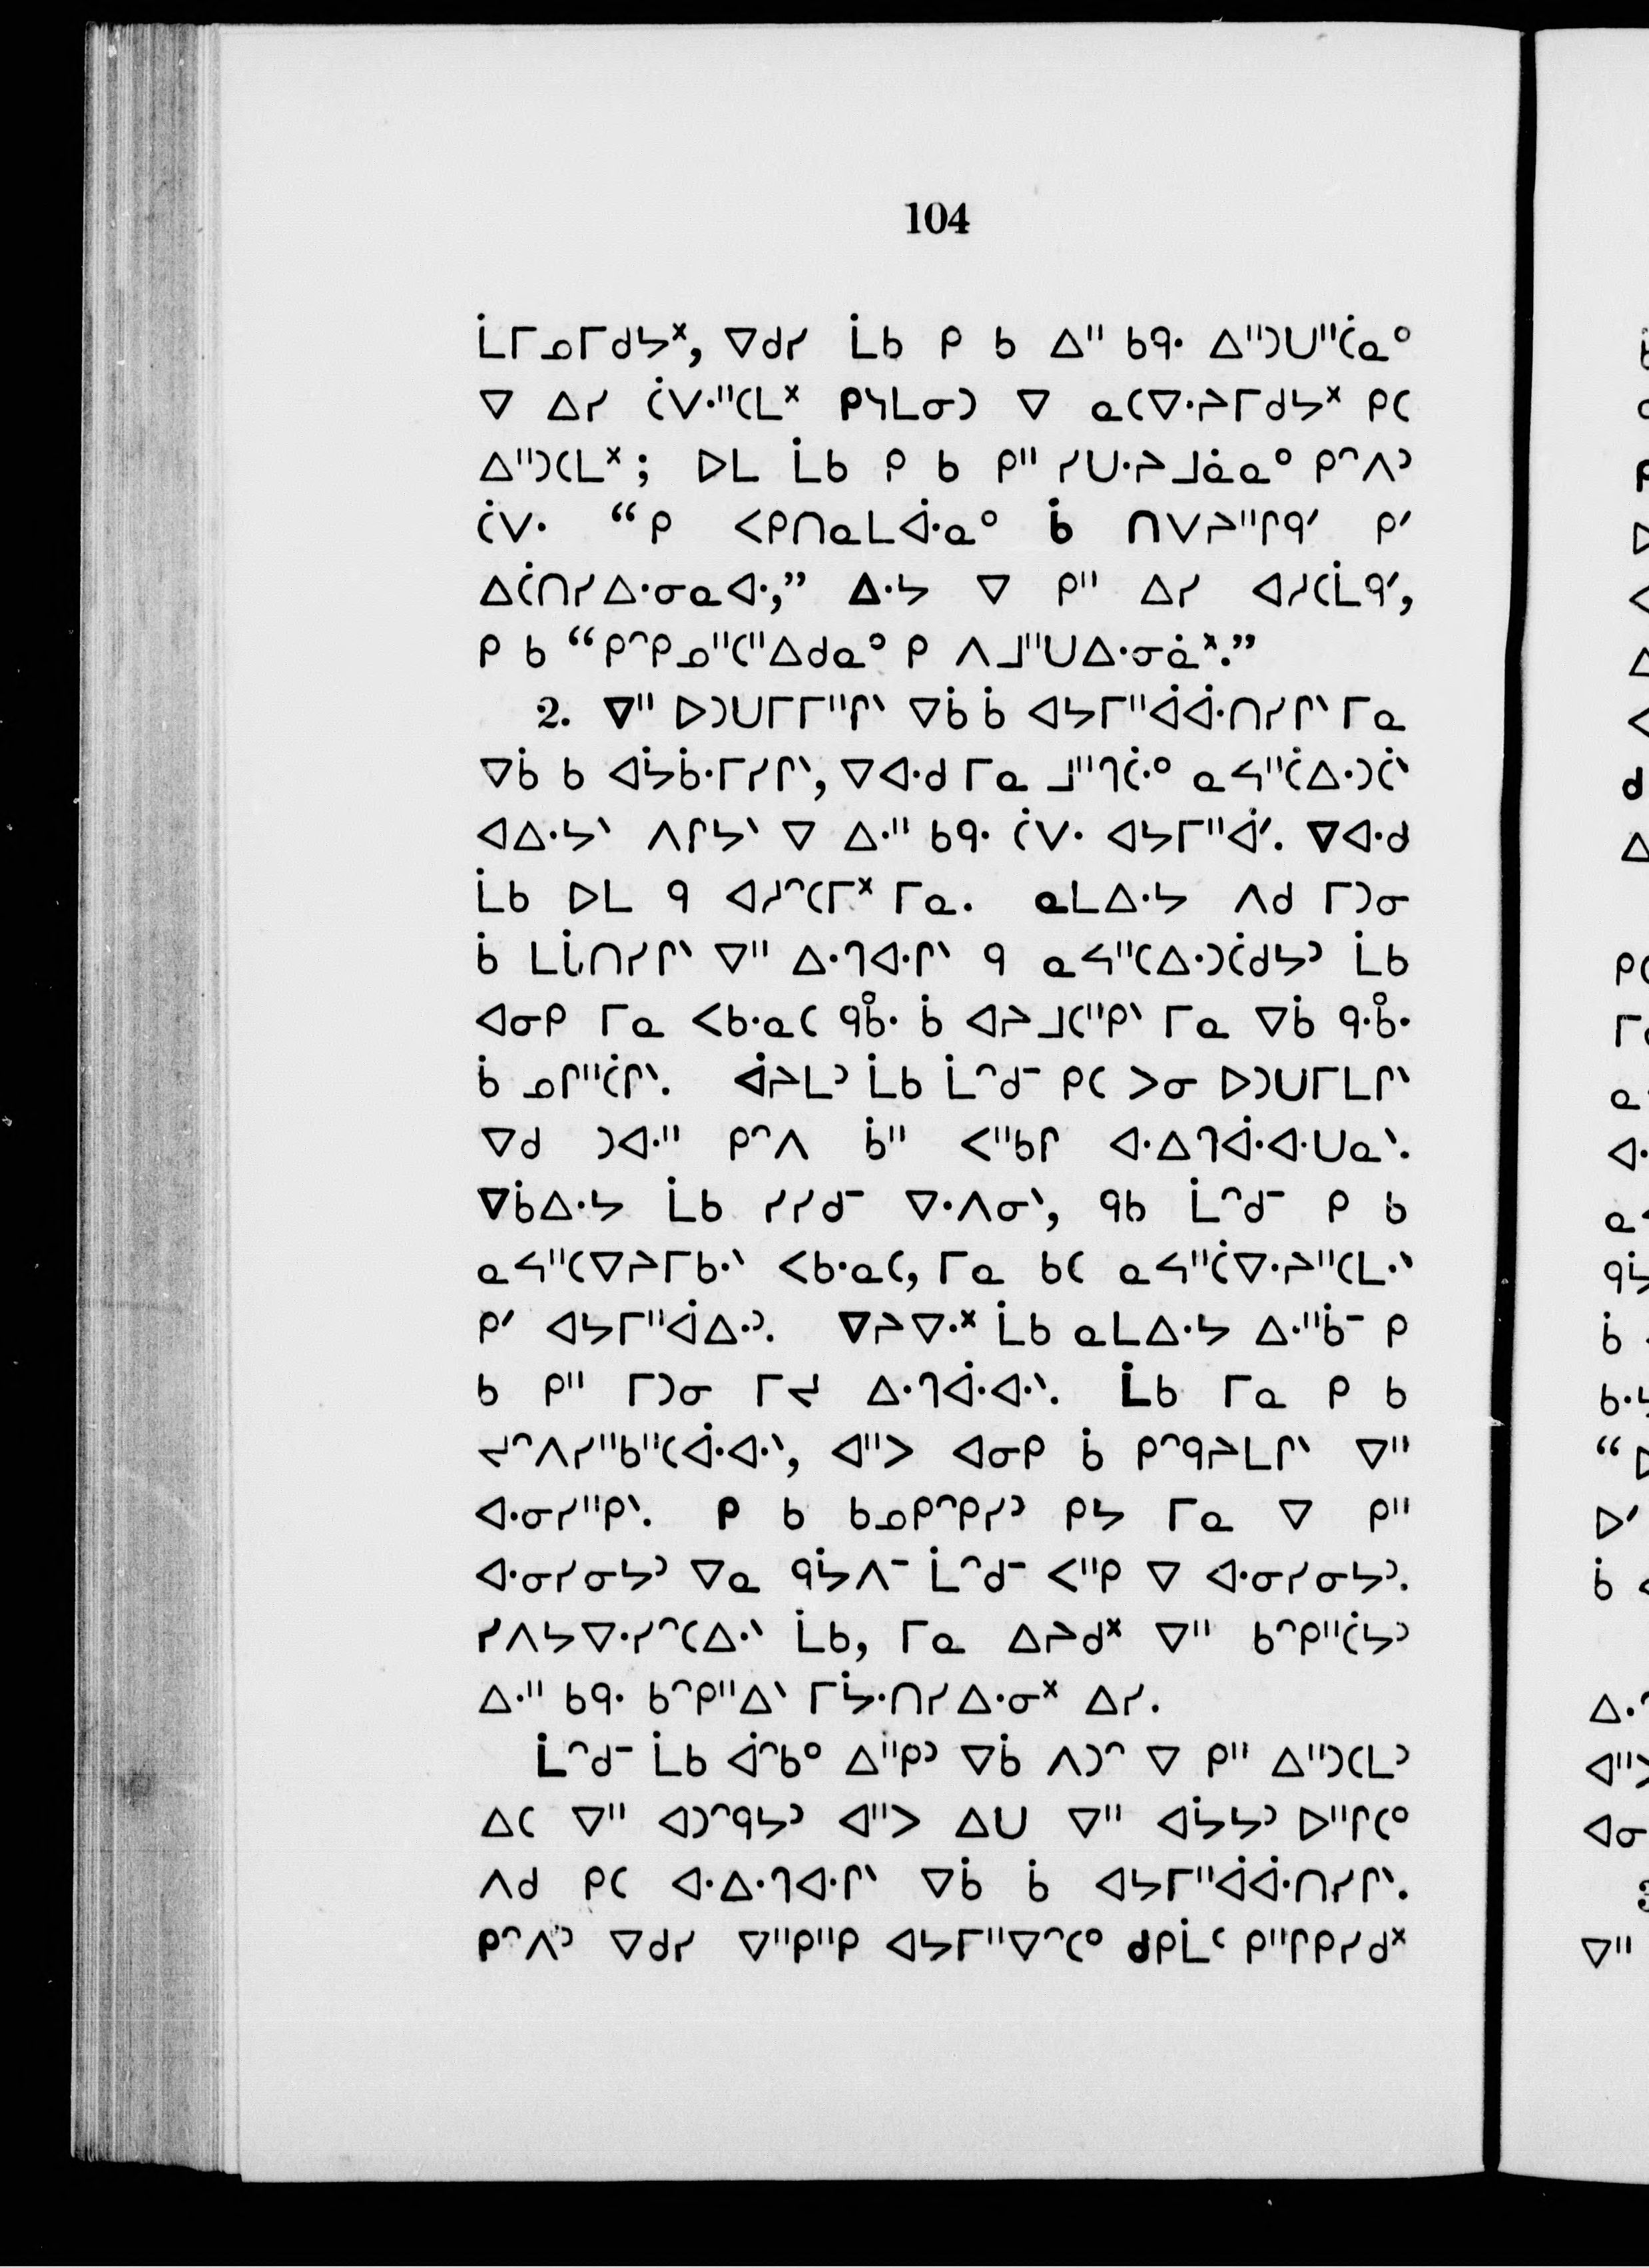 104
ᒫᒥᓄᒥᑯᔭᕽ, ᐁᑯᓯ ᒫᑲ ᑭ ᑲ ᐃᐦ ᑲᑫᐧ ᐃᐦᑐᑌᐦᑖᓇᐤ
ᐁ ᐃᓯ ᑖᐯᐧᐦᑕᒪᕽ ᑭᓴᒪᓂᑐ ᐁ ᓇᑕᐁᐧᔨᒥᑯᔭᕽ ᑭᑕ
ᐃᐦᑐᑕᒪᕽ; ᐅᒪ ᒫᑲ ᑭ ᑲ ᑭᐦ ᓯᑌᐧᔨᒧᓈᓇᐤ ᑭᐢᐱᐣ
ᑖᐯᐧ “ᑭ ᐸᑭᑎᓇᒪᐚᓇᐤ ᑳ ᑎᐯᔨᐦᒋᑫᐟ ᑭᐟ
ᐃᑖᑎᓯᐃᐧᓂᓇᐊᐧ,” ᐃᐧᔭ ᐁ ᑭᐦ ᐃᓯ ᐊᓱᑕᒫᑫᐟ,
ᑭ ᑲ “ᑭᐢᑭᓄᐦᑕᐦᐃᑯᓇᐤ ᑭ ᐱᒧᐦᑌᐃᐧᓂᓈᕽ.”
2. ᐁᐦ ᐅᑐᑌᒥᒥᐦᒋᐠ ᐁᑳ ᑳ ᐊᔭᒥᐦᐋᐚᑎᓯᒋᐠ ᒥᓇ
ᐁᑳ ᑲ ᐊᔮᑳᐧᒥᓯᒋᐠ, ᐁᐊᐧᑯ ᒥᓇ ᒧᐦᒉᑖᐧᐤ ᓇᓴᐦᑖᐃᐧᑐᑖᐠ
ᐊᐃᐧᔭᐠ ᐱᒋᔭᐠ ᐁ ᐃᐧᐦ ᑲᑫᐧ ᑖᐯᐧ ᐊᔭᒥᐦᐋᐟ. ᐁᐊᐧᑯ
ᒫᑲ ᐅᒪ ᑫ ᐊᓱᐢᑕᒥᕽ ᒥᓇ. ᓇᒪᐃᐧᔭ ᐱᑯ ᒥᑐᓂ
ᑳ ᒪᒫᑎᓯᒋᐠ ᐁᐦ ᐃᐧᒉᐊᐧᒋᐠ ᑫ ᓇᓴᐦᑕᐃᐧᑖᑯᔭᐣ ᒫᑲ
ᐊᓂᑭ ᒥᓇ ᐸᑲᐧᓇᑕ ᑫᑳᐧ ᑳ ᐊᔨᒧᑕᐦᑭᐠ ᒥᓇ ᐁᑳ ᑫᐧᑳᐧ
ᑳ ᓄᒋᐦᑖᒋᐠ. ᐋᔨᒪᐣ ᒫᑲ ᒫᐢᑯᐨ ᑭᑕ ᐳᓂ ᐅᑐᑌᒥᒪᒋᐠ
ᐁᑯ ᑐᐊᐧᐦ ᑭᐢᐱ ᑳᐦ ᐸᐦᑲᒋ ᐊᐧᐃᒉᐚᐊᐧᑌᓇᐠ.
ᐁᑳᐃᐧᔭ ᒫᑲ ᓯᓯᑯᐨ ᐁᐧᐱᓂᐠ, ᑫᑲ ᒫᐢᑯᐨ ᑭ ᑲ
ᓇᓴᐦᑕᐁᔨᒥᑲᐧᐠ ᐸᑲᐧᓇᑕ, ᒥᓇ ᑲᑕ ᓇᓴᐦᑖᐁᐧᔨᐦᑕᒪᐧᐠ
ᑭᐟ ᐊᔭᒥᐦᐋᐃᐧᐣ. ᐁᔨᐁᐧᕽ ᒫᑲ ᓇᒪᐃᐧᔭ ᐃᐧᐦᑳᐨ ᑭ
ᑲ ᑭᐦ ᒥᑐᓂ ᒥᔪ ᐃᐧᒉᐚᐊᐧᐠ. ᒫᑲ ᒥᓇ ᑭ ᑲ
ᔪᐢᐱᓯᐦᑲᐦᑕᐚᐊᐧᐠ, ᐊᐦᐳ ᐊᓂᑭ ᑳ ᑭᐢᑫᔨᒪᒋᐠ ᐁᐦ
ᐊᐧᓂᓯᐦᑭᐠ. ᑭ ᑲ ᑲᓄᑭᐢᑭᓯᐣ ᑭᔭ ᒥᓇ ᐁ ᑭᐦ
ᐊᐧᓂᓯᓂᔭᐣ ᐁᓇ ᑫᔮᐱᐨ ᒫᐢᑯᐨ ᐸᐦᑭ ᐁ ᐊᐧᓂᓯᓂᔭᐣ.
ᓯᐱᔭᐁᐧᓯᐢᑕᐃᐧᐠ ᒫᑲ, ᒥᓇ ᐃᔨᑯᕽ ᐁᐦ ᑲᐢᑭᐦᑖᔭᐣ
ᐃᐧᐦ ᑲᑫᐧ ᑲᐢᑭᐦᐃᐠ ᒥᔮᐧᑎᓯᐃᐧᓂᕽ ᐃᓯ.
ᒫᐢᑯᐨ ᒫᑲ ᐋᐢᑲᐤ ᐃᐦᑭᐣ ᐁᑳ ᐱᑐᐢ ᐁ ᑭᐦ ᐃᐦᑐᑕᒪᐣ
ᐃᑕ ᐁᐦ ᐊᑐᐢᑫᔭᐣ ᐊᐦᐳ ᐃᑌ ᐁᐦ ᐊᔮᔭᐣ ᐅᐦᒋᑕᐤ
ᐱᑯ ᑭᑕ ᐊᐧᐃᐧᒉᐊᐧᒋᐠ ᐁᑳ ᑳ ᐊᔭᒥᐦᐋᐚᑎᓯᒋᐠ.
ᑭᐢᐱᐣ ᐁᑯᓯ ᐁᐦᑭᐦᑭ ᐊᔭᒥᐦᐁᐢᑕᐤ ᑯᑭᒫᑦ ᑭᐦᒋᑭᓯᑯᕽ